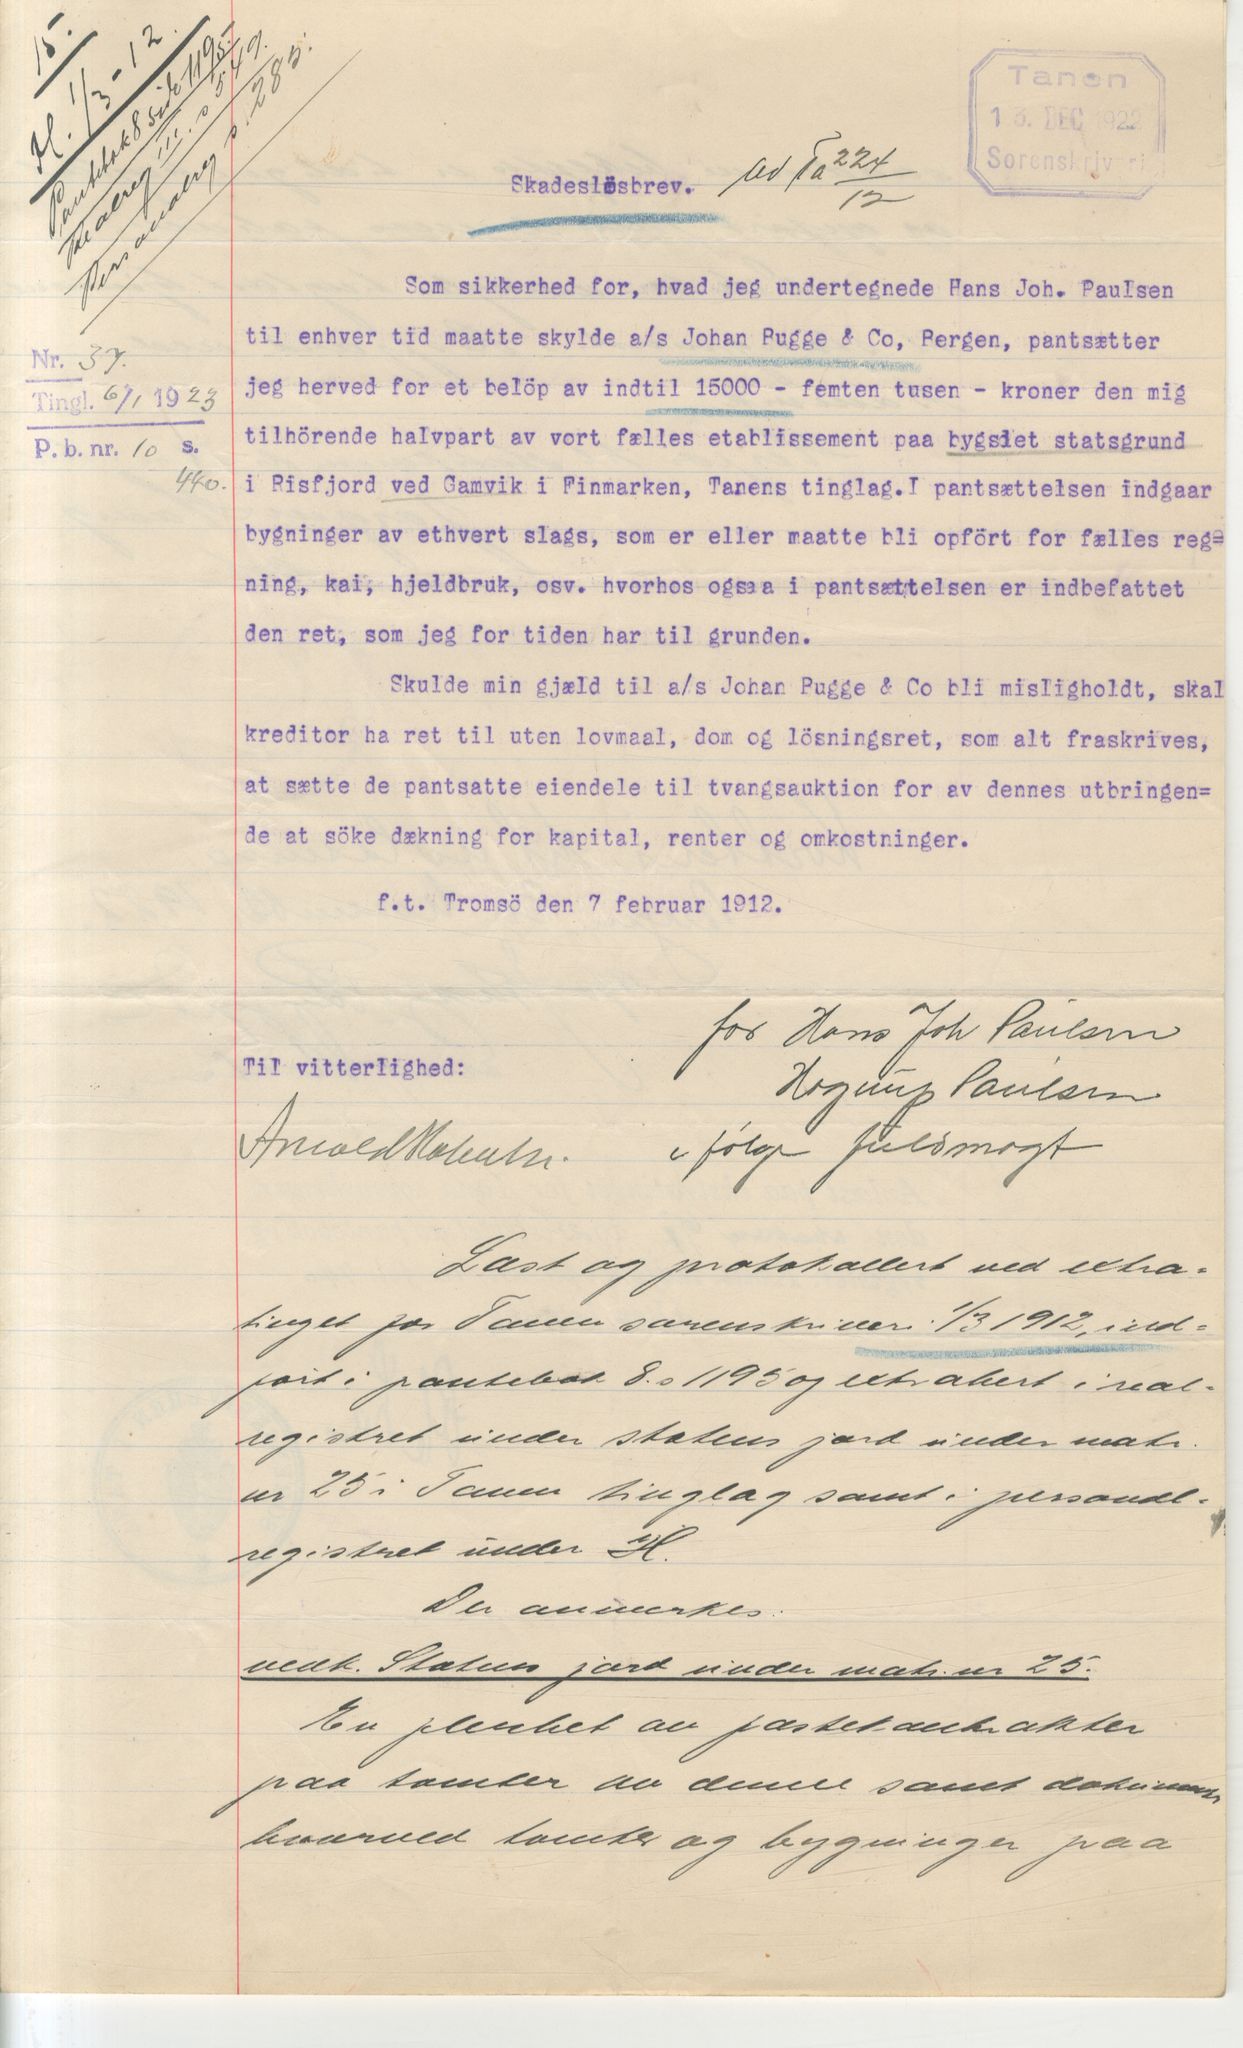 15.
H. 1/3-12.
Pantebok 8 side 1195.
Realreg III. s 549.
Personalreg s. 285.
Tanen
13. DEC 1922
Sorenskriveri
Skadeslösbrev.
ad Ta 224/12
Som sikkerhed for, hvad jeg undertegnede Hans Joh. Paulsen
til enhver tid maatte skylde a/s Johan Bugge & Co, Bergen, pantsætter
jeg herved for et belöp av indtil 15000 - femten tusen - kroner den mig
tilhörende halvpart av vort fælles etablissement paa bygslet statsgrund
i Risfjord ved Gamvik i Finmarken, Tanens tinglag.I pantsættelsen indgaar
bygninger av ethvert slags, som er eller maatte bli opfört for fælles reg=
ning, kai, hjeldbruk, osv. hvorhos ogsaa i pantsættelsen er indbefattet
den ret, som jeg for tiden har til grunden.
Nr. 37.
Tingl. 6/1 1923
P. b. nr. 10 s.
440.
Skulde min gjæld til a/s Johan Bugge & Co bli misligholdt, skal
kreditor ha ret til uten lovmaal, dom og lösningsret, som alt fraskrives,
at sætte de pantsatte eiendele til tvangsauktion for av dennes utbringen=
de at söke dækning for kapital, renter og omkostninger.
f.t. Tromsö den 7 februar 1912.
for Hans Joh Paulsen
Paulsen
i følge fuldmagt
Til vitterlighed:
Arnold
Læst og protokollert ved extra-
tinget for Tanen sorenskriveri 1/3 1912, ind-
ført i pantebok 8. s 1195 og extrahert i real-
registret under statens jord under matr.
nr 25 i Tanen tinglag samt i personal-
registret under H.
Der anmerkes:
vedk. Statens jord under matr. nr 25.
En plenhet av fæstekontrakter
paa tomter av denne samt dokumenter
hvorved tomter og bygninger paa